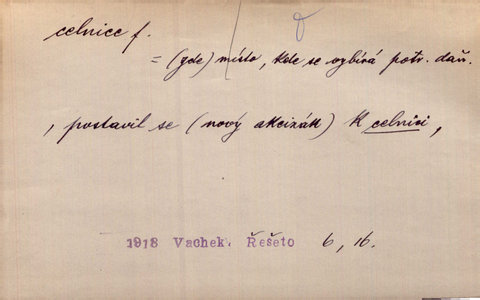 celnice f.
= (zde) místo, kde se vybírá potr. daň.
, postavil se (nový akcizák) k celnici,
1918 Vachek. Řešeto 6, 16.